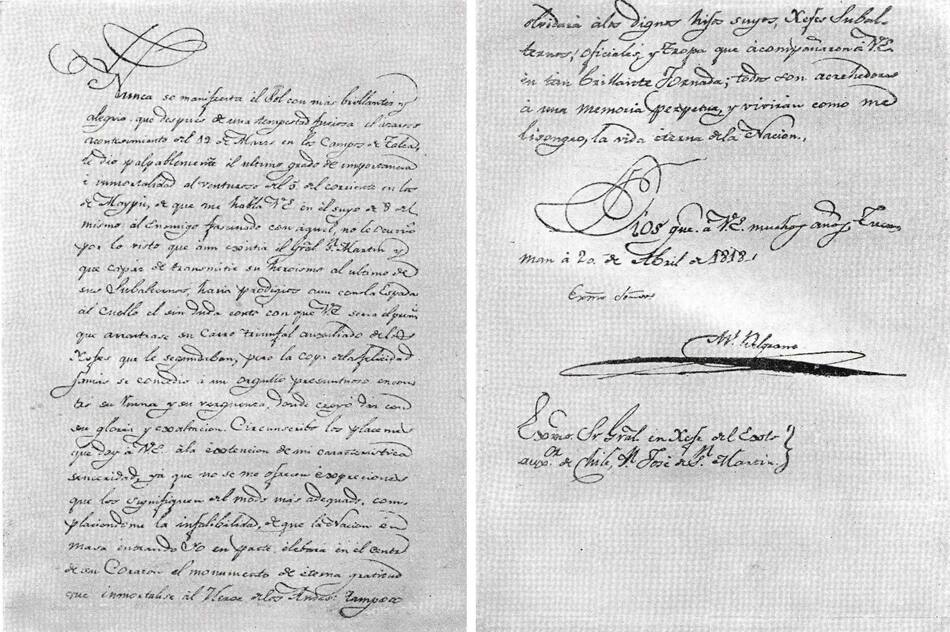 Nunca se manifiesta el Sol con más brillantez y
alegria, que despues de una tempestad furiosa el
acontecimiento del 19 de Marzo en los Campos de Talca,
le dio palpablemente el ultimo grado de importancia
é inmortalidad al venturoso del 5 del corriente en los
de Maypú, de que me habla V.E. en el suyo de 8 del
mismo al Enemigo fascinado con aquel, no le ocurrio
por lo visto que aun existia el Gral Sn. Martin y
que capaz de transmitir su heroismo al ultimo de
sus Subalternos, haria prodigios con la Espada
al Cuello el sin duda contó con que V.E. seria el
que arrastrase su Carro triunfal auxiliado de los
Xefes que le segundaban, pero la copa de la felicidad
jamás se concedio á un orgullo presuntuoso encon
tro su ruina y su verguenza, donde creyó dar con
su gloria y exaltacion. Circunscribo los placemes
que doy á V.E. á la extencion de mi caracteristica
sinceridad, ya que no se me ofrecen expreciones
que los signifiquen del modo más adequado, com
placiendome la infalibilidad, de que la Nacion en
masa entrando Yo en parte, elebará en el centro
de su Corazon el monumento de eterna gratitud
que inmortalise al Heroe de los Andes: tampoco
olvidará á los dignos hijos suyos, Xefes Subal-
ternos, oficiales, y tropa que acompañaron á V.E.
en tan brillante Jornada; todos son acrehedores
á una memoria perpetua, y viviran como me
lisongeo, la vida eterna de la Nacion.
Dios gue. á V.E. muchos años Tucu
man á 20. de Abril de 1818.
Exmo Señor
Ml. Belgrano
Exmo. Sr. Gral en Xefe del Exto
auxor. de Chile, Dn. José de Sn. Martin.